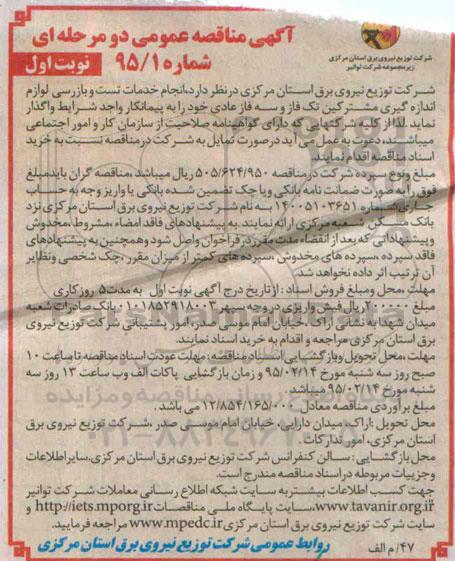 آگهی مناقصه عمومی دو مرحله ای
شماره ۹۵/۱
نوبت اول
شرکت توزیع نیروی برق استان مرکزی
زیرمجموعه شرکت توانیر
شرکت توزیع نیروی برق استان مرکزی درنظر دارد،انجام خدمات تست و بازرسی لوازم
اندازه گیری مشترکین تک فاز و سه فاز عادی خود را به پیمانکار واجد شرایط واگذار
نماید.لذا از کلیه شرکتهایی که دارای گواهینامه صلاحیت از سازمان کار و امور اجتماعی
میباشند،دعوت به عمل می آید در صورت تمایل به شرکت در مناقصه نسبت به خرید
اسناد مناقصه اقدام نمایند.
مبلغ ونوع سپرده شرکت در مناقصه ۵۰۵/۶۲۴/۹۵۰ ریال میباشد،مناقصه گران بایدمبلغ
فوق را به صورت ضمانت نامه بانکی ویا چک تضمین شده بانکی یا واریز وجه به حساب
جاری شماره ۱۴۰۰۵۱۰۳۶۵۱ به نام شرکت توزیع نیروی برق استان مرکزی نزد
بانک مسکن شعبه مرکزی ارائه نمایند.به پیشنهادهای فاقد امضاء ،مشروط ،مخدوش
و پیشنهاداتی که بعد از انقضاء مدت مقرر در فراخوان واصل شود وهمچنین به پیشنهادهای
فاقد سپرده ،سپرده های مخدوش ،سپرده های کمتر از میزان مقرر ،چک شخصی ونظایر
آن ترتیب اثر داده نخواهد شد.
مهلت ،محل ومبلغ فروش اسناد : از تاریخ درج آگهی نوبت اول به مدت۵ روز کاری
مبلغ ۲۰۰۰۰۰ ریال فیش واریزی در وجه سپهر ۰۱۰۱۸۵۲۹۱۸۰۰۳ بانک صادرات شعبه
میدان شهدا به نشانی اراک ،خیابان امام موسی صدر، امور پشتیبانی شرکت توزیع نیروی
برق استان مرکزی مراجعه و اقدام به خرید اسناد نمایند.
مهلت ،محل تحویل وبازگشایی اسناد مناقصه : مهلت عودت اسناد مناقصه تا ساعت ۱۰
صبح روز سه شنبه مورخ ۹۵/۰۲/۱۴ و زمان بازگشایی پاکات الف وب ساعت ۱۳ روز سه
شنبه مورخ ۹۵/۰۲/۱۴ میباشد.
مبلغ برآوردی مناقصه معادل ۱۲/۸۵۴/۱۶۵/۰۰۰ می باشد.
محل تحویل :اراک، میدان دارایی، خیابان امام موسی صدر ،شرکت توزیع نیروی برق
استان مرکزی، امور تدارکات.
محل بازگشایی : سالن کنفرانس شرکت توزیع نیروی برق استان مرکزی.سایر اطلاعات
وجزییات مربوطه در اسناد مناقصه مندرج است.
جهت کسب اطلاعات بیشتر به سایت شبکه اطلاع رسانی معاملات شرکت توانیر
www.tavanir.org.ir،سایت پایگاه ملی مناقصات http://iets.mporg.ir و
سایت شرکت توزیع نیروی برق استان مرکزی www.mpedc.ir مراجعه فرمایید.
۴۷/م الف
روابط عمومی شرکت توزیع نیروی برق استان مرکزی